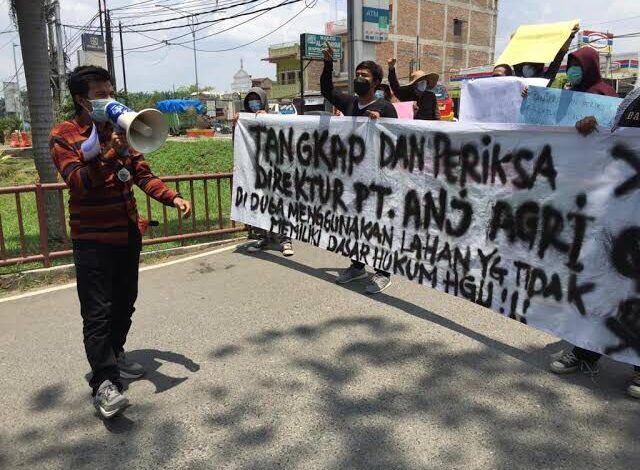 TANGKAP DAN PERIKSA
DIREKTUR PT. ANJ AGRI
DI DUGA MENGGUNAKAN LAHAN YG TIDAK
MEMILIKI DASAR HUKUM HGU!!!
ATM